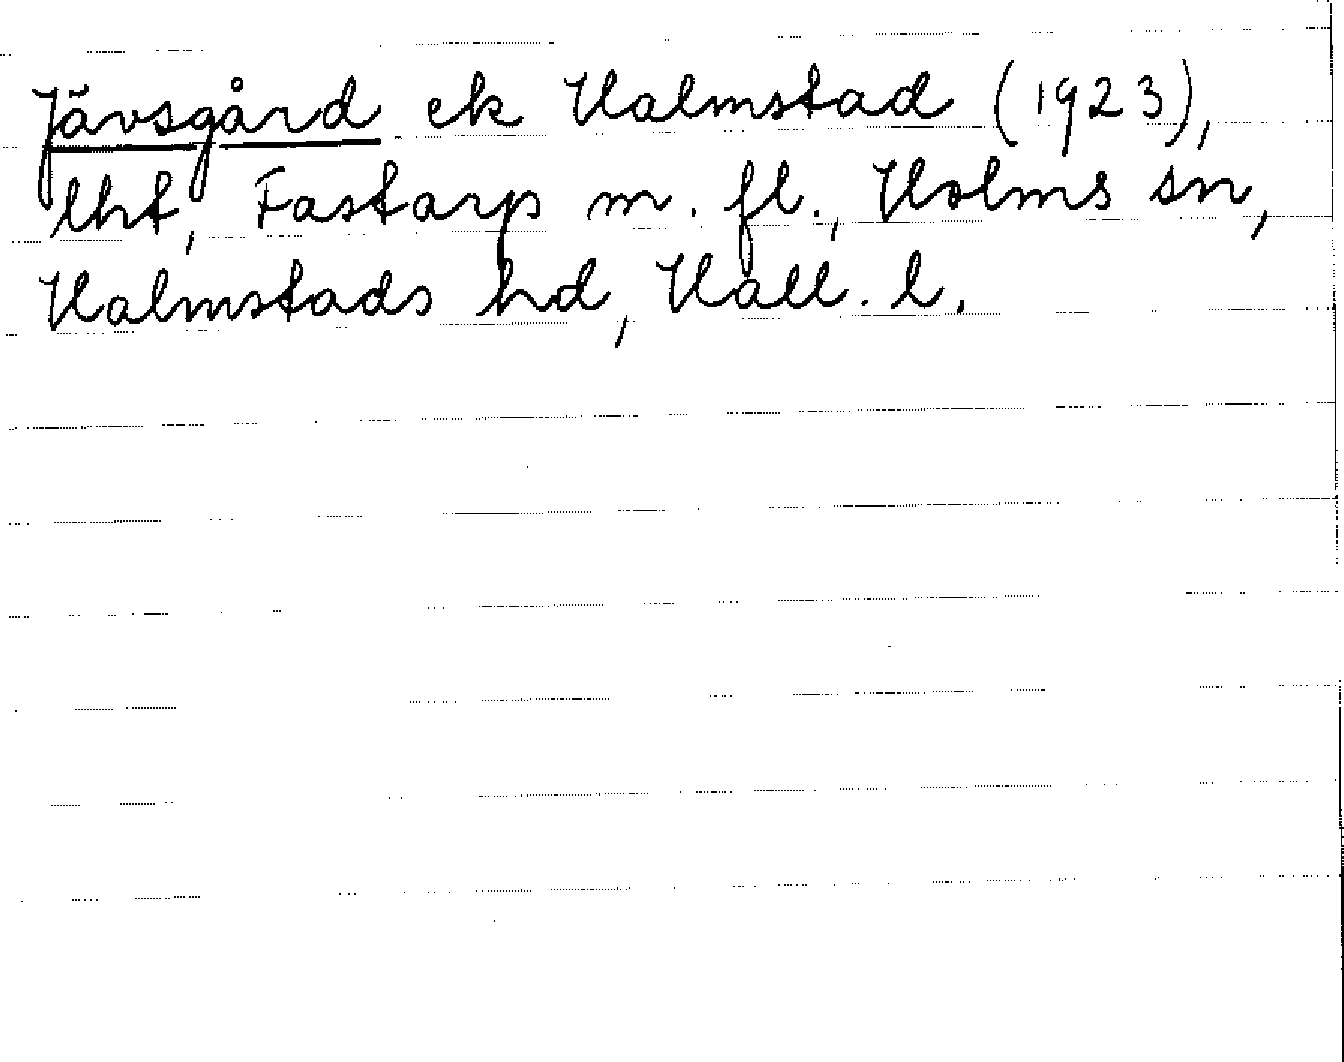 Jävsgård ek Halmstad (1923),
lht, Fastarp m. fl., Holms sn,
Halmstads hd, Hall. l.